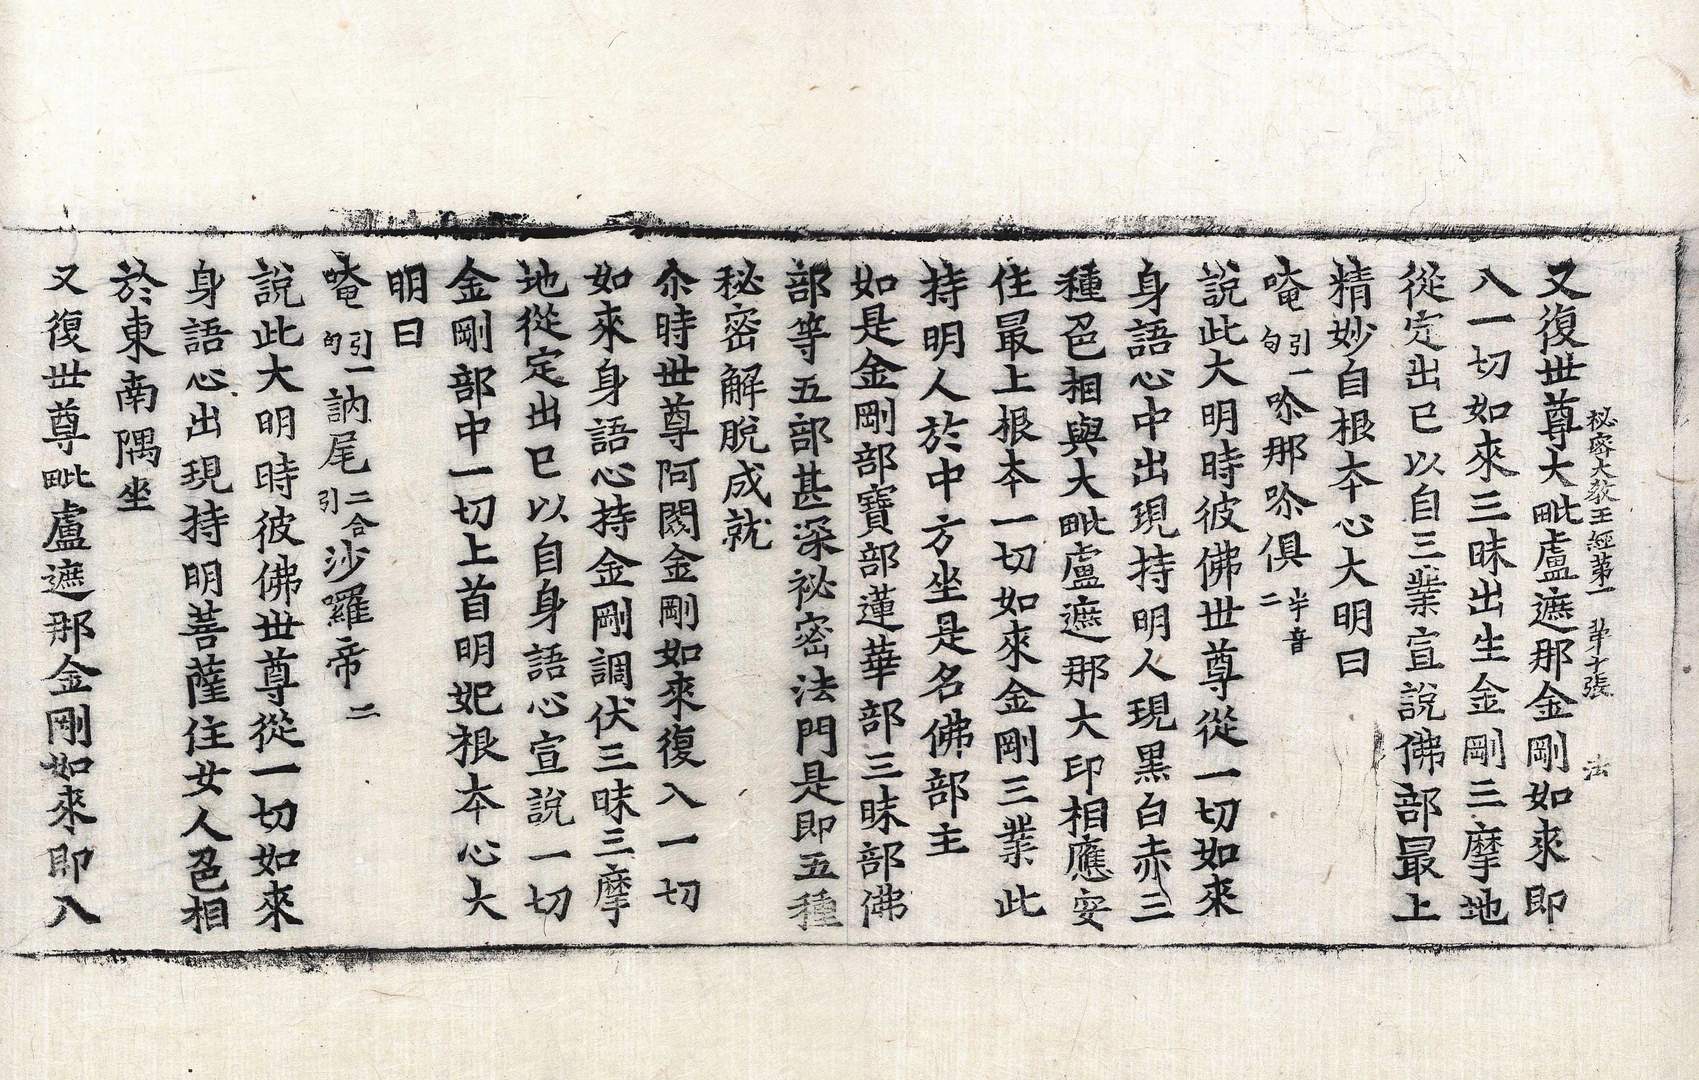 秘密大教王經第一 第十張 法
又復世尊大毗盧遮那金剛如來即
入一切如來三昧出生金剛三摩地
從定出已以自三業宣說佛部最上
精妙自根本心大明曰
唵引一句唵那唵俱半音二
說此大明時彼佛世尊從一切如來
身語心中出現持明人現黑白赤三
種色相與大毗盧遮那大印相應安
住最上根本一切如來金剛三業此
持明人於中方坐是名佛部主
如是金剛部寶部蓮華部三昧部佛
部等五部甚深祕密法門是即五種
秘密解脫成就
尒時世尊阿閦金剛如來復入一切
如來身語心持金剛調伏三昧三摩
地從定出已以自身語心宣說一切
金剛部中一切上首明妃根本心大
明曰
唵引一句訥尾二合引沙囉帝二
說此大明時彼佛世尊從一切如來
身語心出現持明菩薩住女人色相
於東南隅坐
又復世尊毗盧遮那金剛如來即入